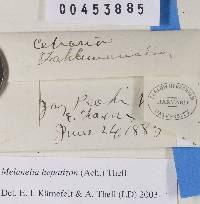 00453885
Cetraria
Fahlunensis
Jay Peak
E. Faxon
June 24, 188
HARVARD
Melanelia hepatizon (Ach.) Thell
Det. E. I. Kärnefelt & A. Thell (LD) 2003